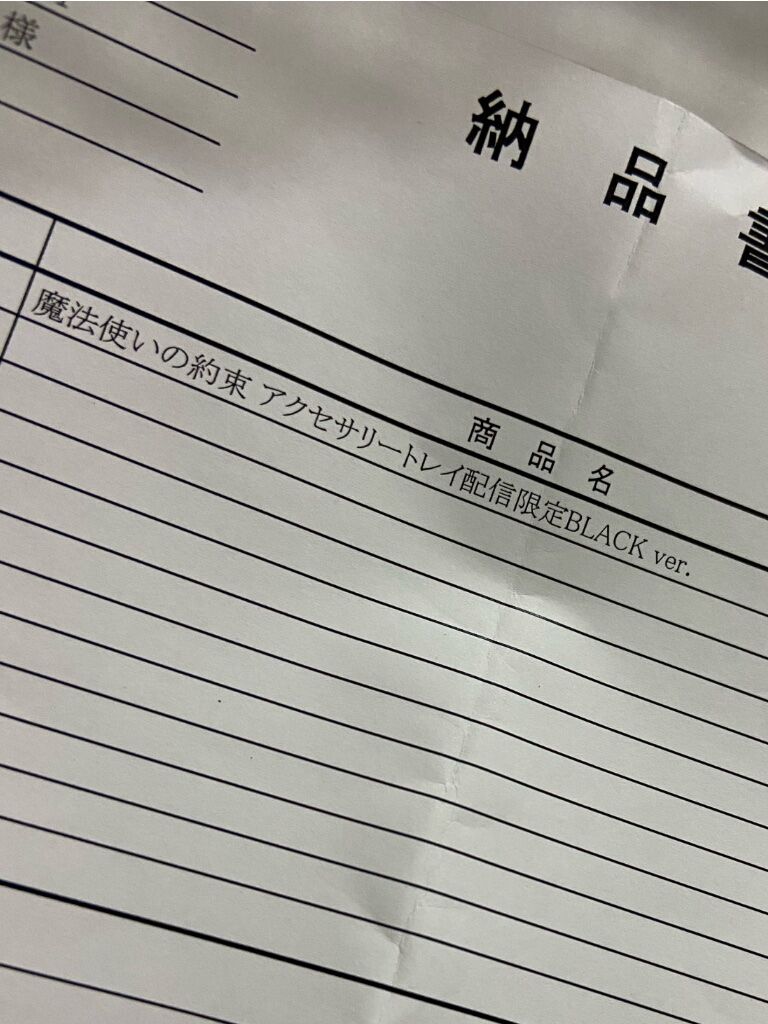 様
納品書
商品名
魔法使いの約束 アクセサリートレイ配信限定BLACK ver.